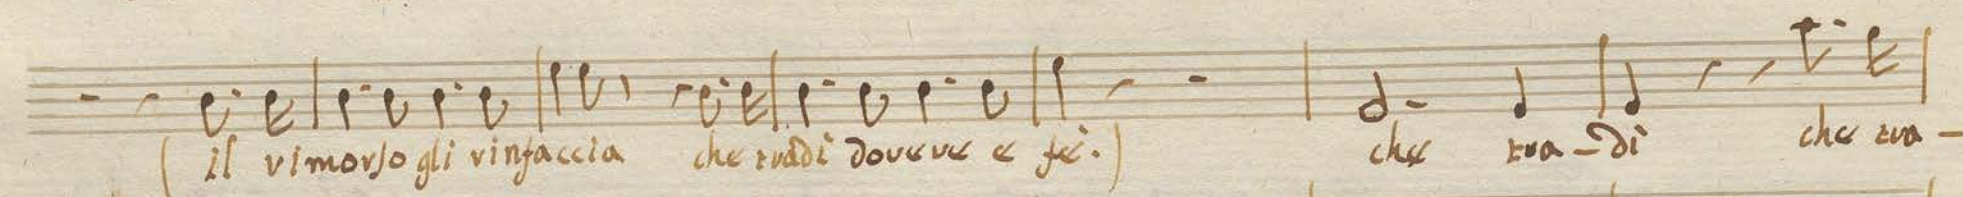 ( il rimorso gli rinfaccia che tradi dovere e fé.) che tra-di che tra-